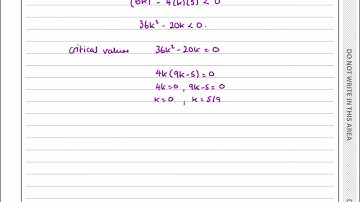 (6k)² - 4(k)(5) < 0
36k² - 20k < 0.
critical values 36k² - 20k = 0
4k(9k-5) = 0
4k = 0 , 9k-5 = 0
k = 0 , k = 5/9
DO NOT WRITE IN THIS AREA